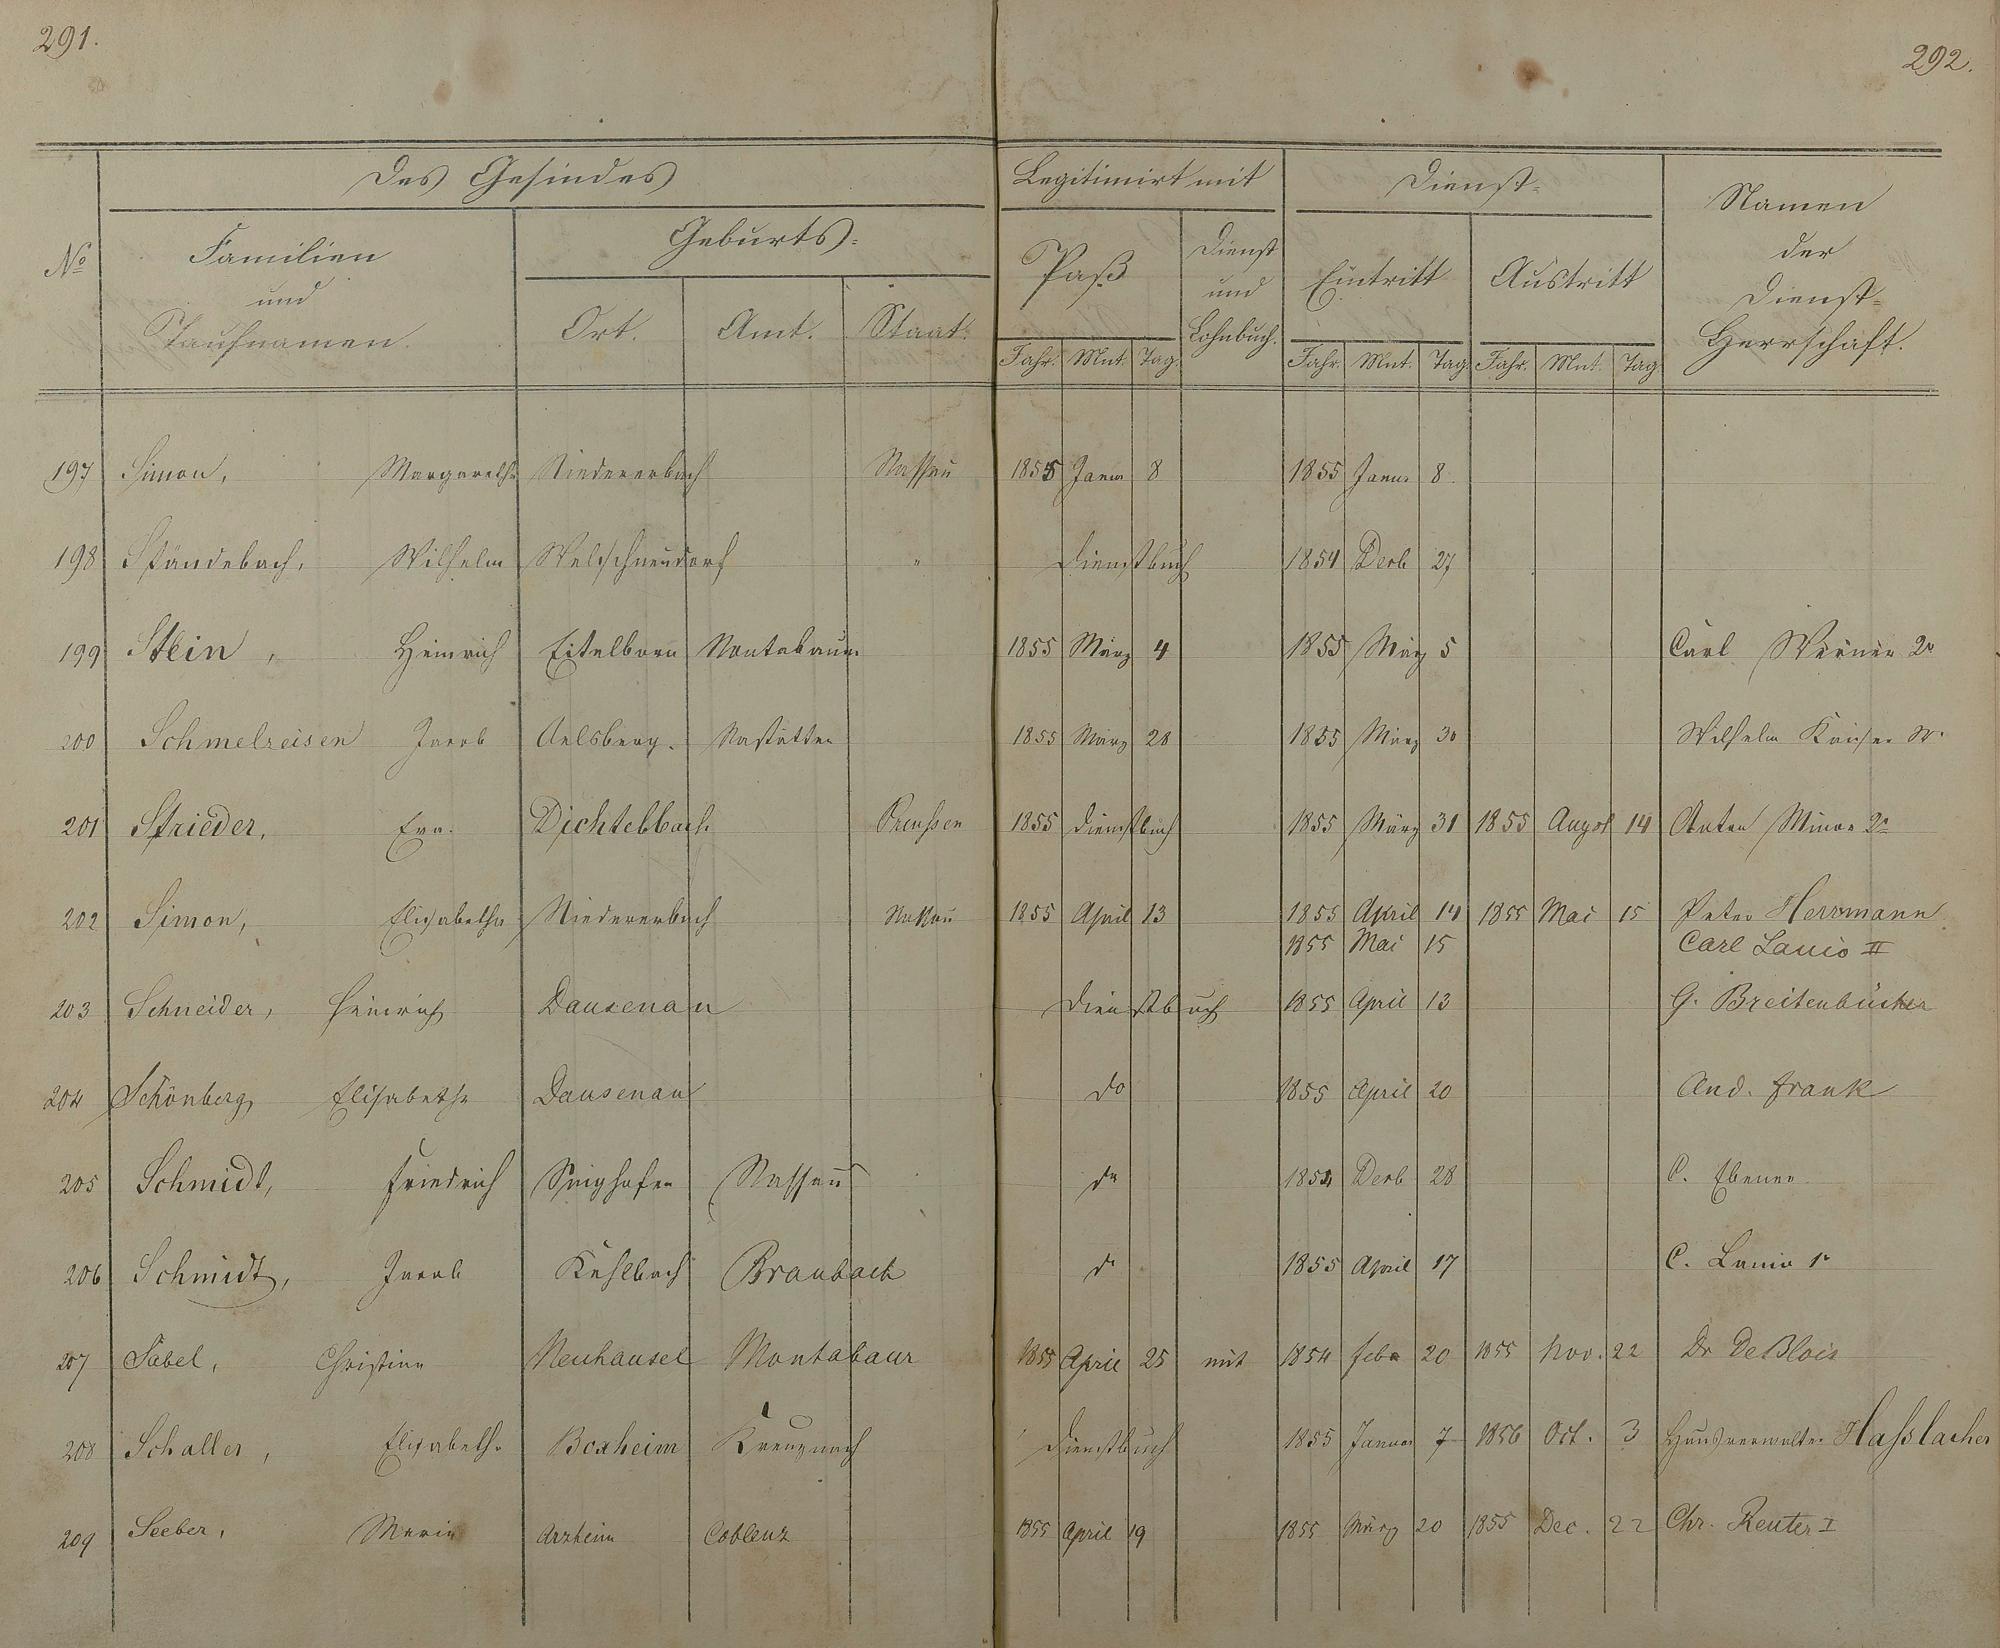 291.
292.
Des Gesindes
Legitimirt mit
Dienst-
Namen der Dienst-Herrschaft.
No
Familien und Taufnamen.
Geburts-
Paß
Dienst und Lohnbuch.
Eintritt
Austritt
Ort. Amt. Staat.
Jahr. Mnt. Tag. Jahr. Mnt. Tag. Jahr. Mnt. Tag
197 Simon, Margarethe Niedererbach Nassau 1855 Januar 8 1855 Janu. 8
198 Ständebach, Wilhelm Welschneudorf " Dienstbuch 1854 Decb 27
199 Stein, Heinrich Eitelborn Montabaur 1855 März 4 1855 März 5 Carl Werner 2r
200 Schmelzeisen Jacob Aelsberg. Nastätten 1855 März 28 1855 März 30 Wilhelm Kaiser
201 Strieder, Eva. Dichtelbach. Preußen 1855 Dienstbuch 1855 März 31 1855 August 14 Anton Minor 2r
202 Simon, Elisabetha Niedererbach Nassau 1855 April 13 1855 April 14 1855 Mai 15 Peter Herrmann
1855 Mai 15 Carl Lanio II
203 Schneider, Heinrich Dausenau Dienstbuch 1855 April 13 G. Breitenbücher
204 Schönberg, Elisabethe Dausenau do 1855 April 20 And. Frank
205 Schmidt, Friedrich Singhofen Nassau do 1854 Decb 28 C. Ebener
206 Schmidt, Jacob Kehlbach Braubach do 1855 April 17 C. Lanio 1r
207 Sabel, Christine Neuhäusel Montabaur 1855 April 25 mit 1854 Feb 20 1855 Nov. 22 Dr De Blois
208 Schaller, Elisabethe Boxheim Kreuznach Dienstbuch 1855 Januar 7 1856 Oct. 3 Hausverwalter Hasslacher
209 Seeber, Marie Arzheim Coblenz 1855 April 19 1855 März 20 1855 Dec. 22 Chr. Reuter I